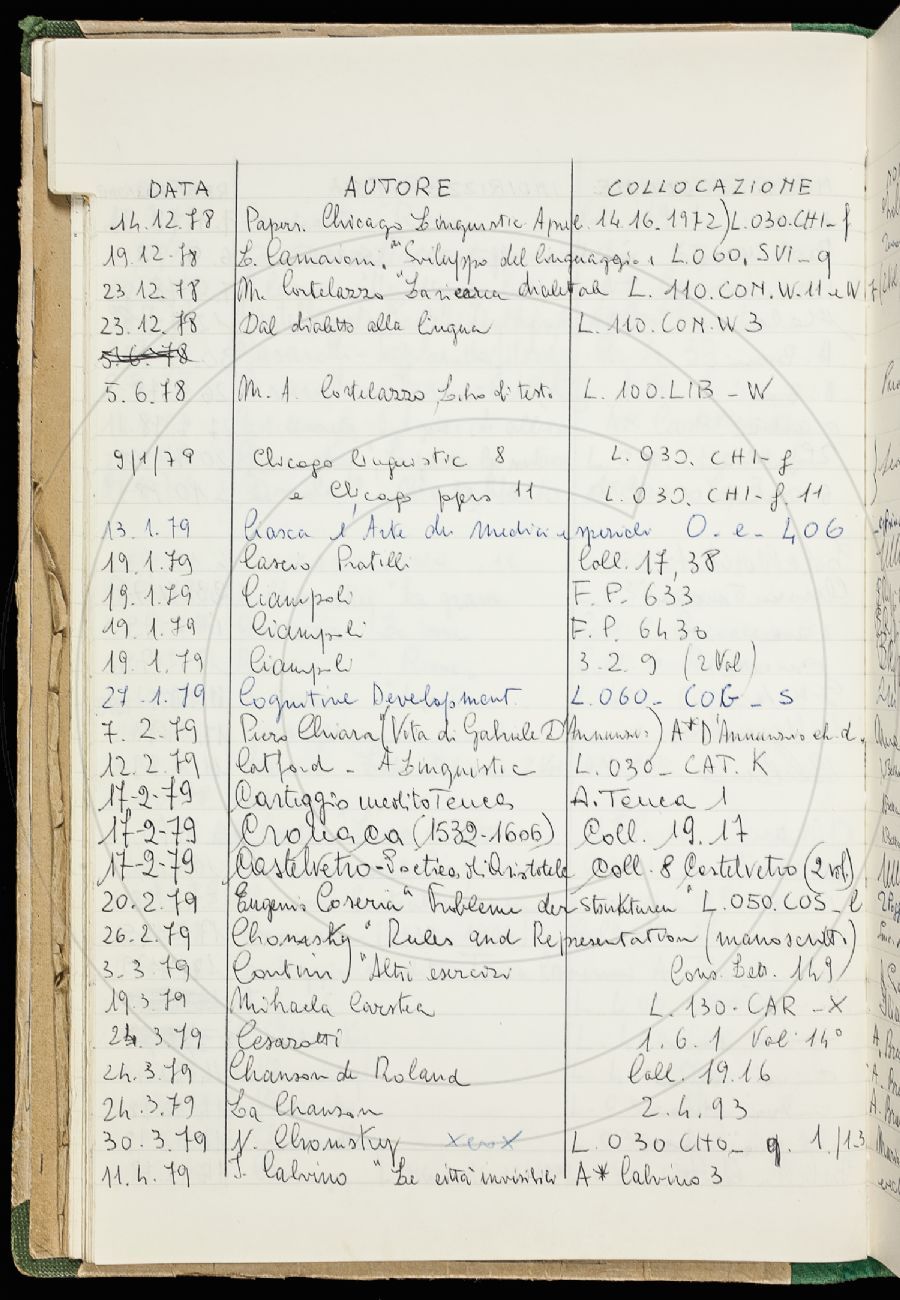 DATA AUTORE COLLOCAZIONE
14.12.78 Papers. Chicago Linguistic April. 14.16.1972) L.030.CHI-f
19.12.78 L. Camaioni. "Sviluppo del linguaggio" L.060. SVI-q
23.12.78 M. Cortelazzo "La ricerca dialettale L. 110.CON.W.11 e W 7
23.12.78 Dal dialetto alla lingua L.110.CON.W3
5.6.78
5.6.78 M. A. Cortelazzo, Libro di testo L. 100.LIB - W
9/1/79 Chicago linguistic 8 L.030. CHI-f
e Chicago papers 11 L.030. CHI-f. 11
13.1.79 l'Arte dei Medici e speziali O. e. 406
19.1.79 Cascio Pratilli Coll. 17,38
19.1.79 Ciampoli F.P. 633
19.1.79 Ciampoli F.P. 6430
19.1.79 Ciampoli 3.2.9 (2 Vol)
27.1.79 Cognitive Development. L.060- COG - S
7.2.79 Piero Chiara (Vita di Gabriele D'Annunzio) A* D'Annunzio ch.d.
12.2.79 Catford - A Linguistic L.030- CAT. K
17-2-79 Carteggio inedito Tenca A. Tenca 1
17-2-79 Cronaca (1532-1606) Coll. 19.17
17-2-79 Castelvetro - Poetica di Aristotele Coll. 8 Castelvetro (2 vol)
20.2.79 Eugenio Coseriu "Probleme der Strukturen" L.050.COS-l
26.2.79 Chomsky "Rules and Representation (manoscritti)
3.3.79 Contini) "Altri esercizi Cons. Lett. 149)
19.3.79 Mihaela Carstea L.130.CAR -X
24.3.79 Cesarotti 1.6.1 Vol. 14°
24.3.79 Chanson de Roland Coll. 19.16
24.3.79 La Chanson 2.4.93
30.3.79 N. Chomsky xerox L.030 CHO- q. 1./13
11.4.79 I. Calvino "Le città invisibili A* Calvino 3